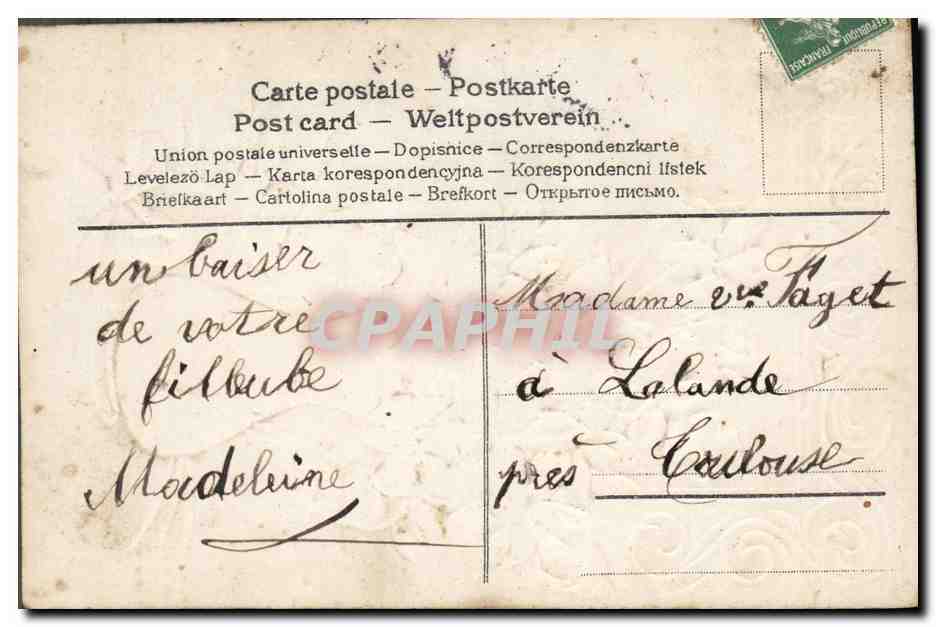 REPUBLIQUE FRANÇAISE
Carte postale – Postkarte
Post card — Weltpostverein
Union postale universelle — Dopisnice — Correspondenzkarte
Levelezö Lap — Karta korespondencyjna — Korespondencni lístek
Briefkaart — Cartolina postale — Brefkort — Открытое письмо.
un baiser
de votre
filleule
Madeleine
Madame vve Faget
à Lalande
près Toulouse
CPAPHIL